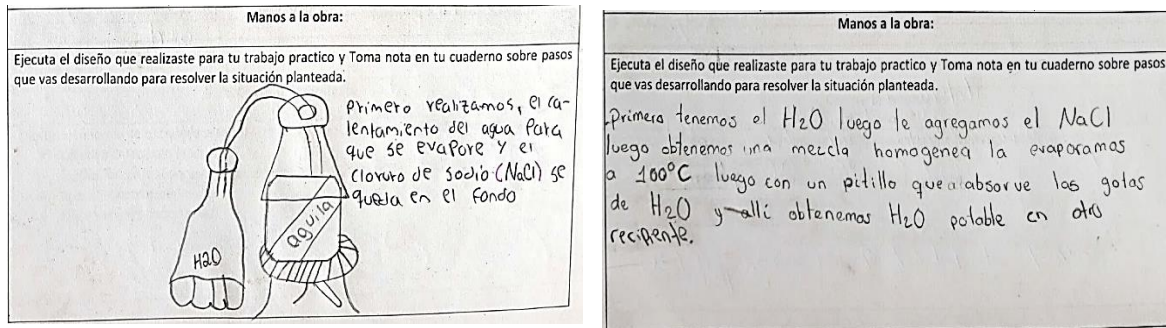 Manos a la obra:
Ejecuta el diseño que realizaste para tu trabajo practico y Toma nota en tu cuaderno sobre pasos
que vas desarrollando para resolver la situación planteada.
Primero realizamos, el ca-
lentamiento del agua Para
que se evapore y el
Cloruro de Sodio (NaCl) se
queda en el fondo
aguila
H2O
Manos a la obra:
Ejecuta el diseño que realizaste para tu trabajo practico y Toma nota en tu cuaderno sobre pasos
que vas desarrollando para resolver la situación planteada.
Primero tenemos el H2O luego le agregamos el NaCl
luego obtenemos una mezcla homogenea la evaporamos
a 100°C luego con un pitillo que absorve las gotas
de H2O y alli obtenemos H2O potable en otro
recipiente.